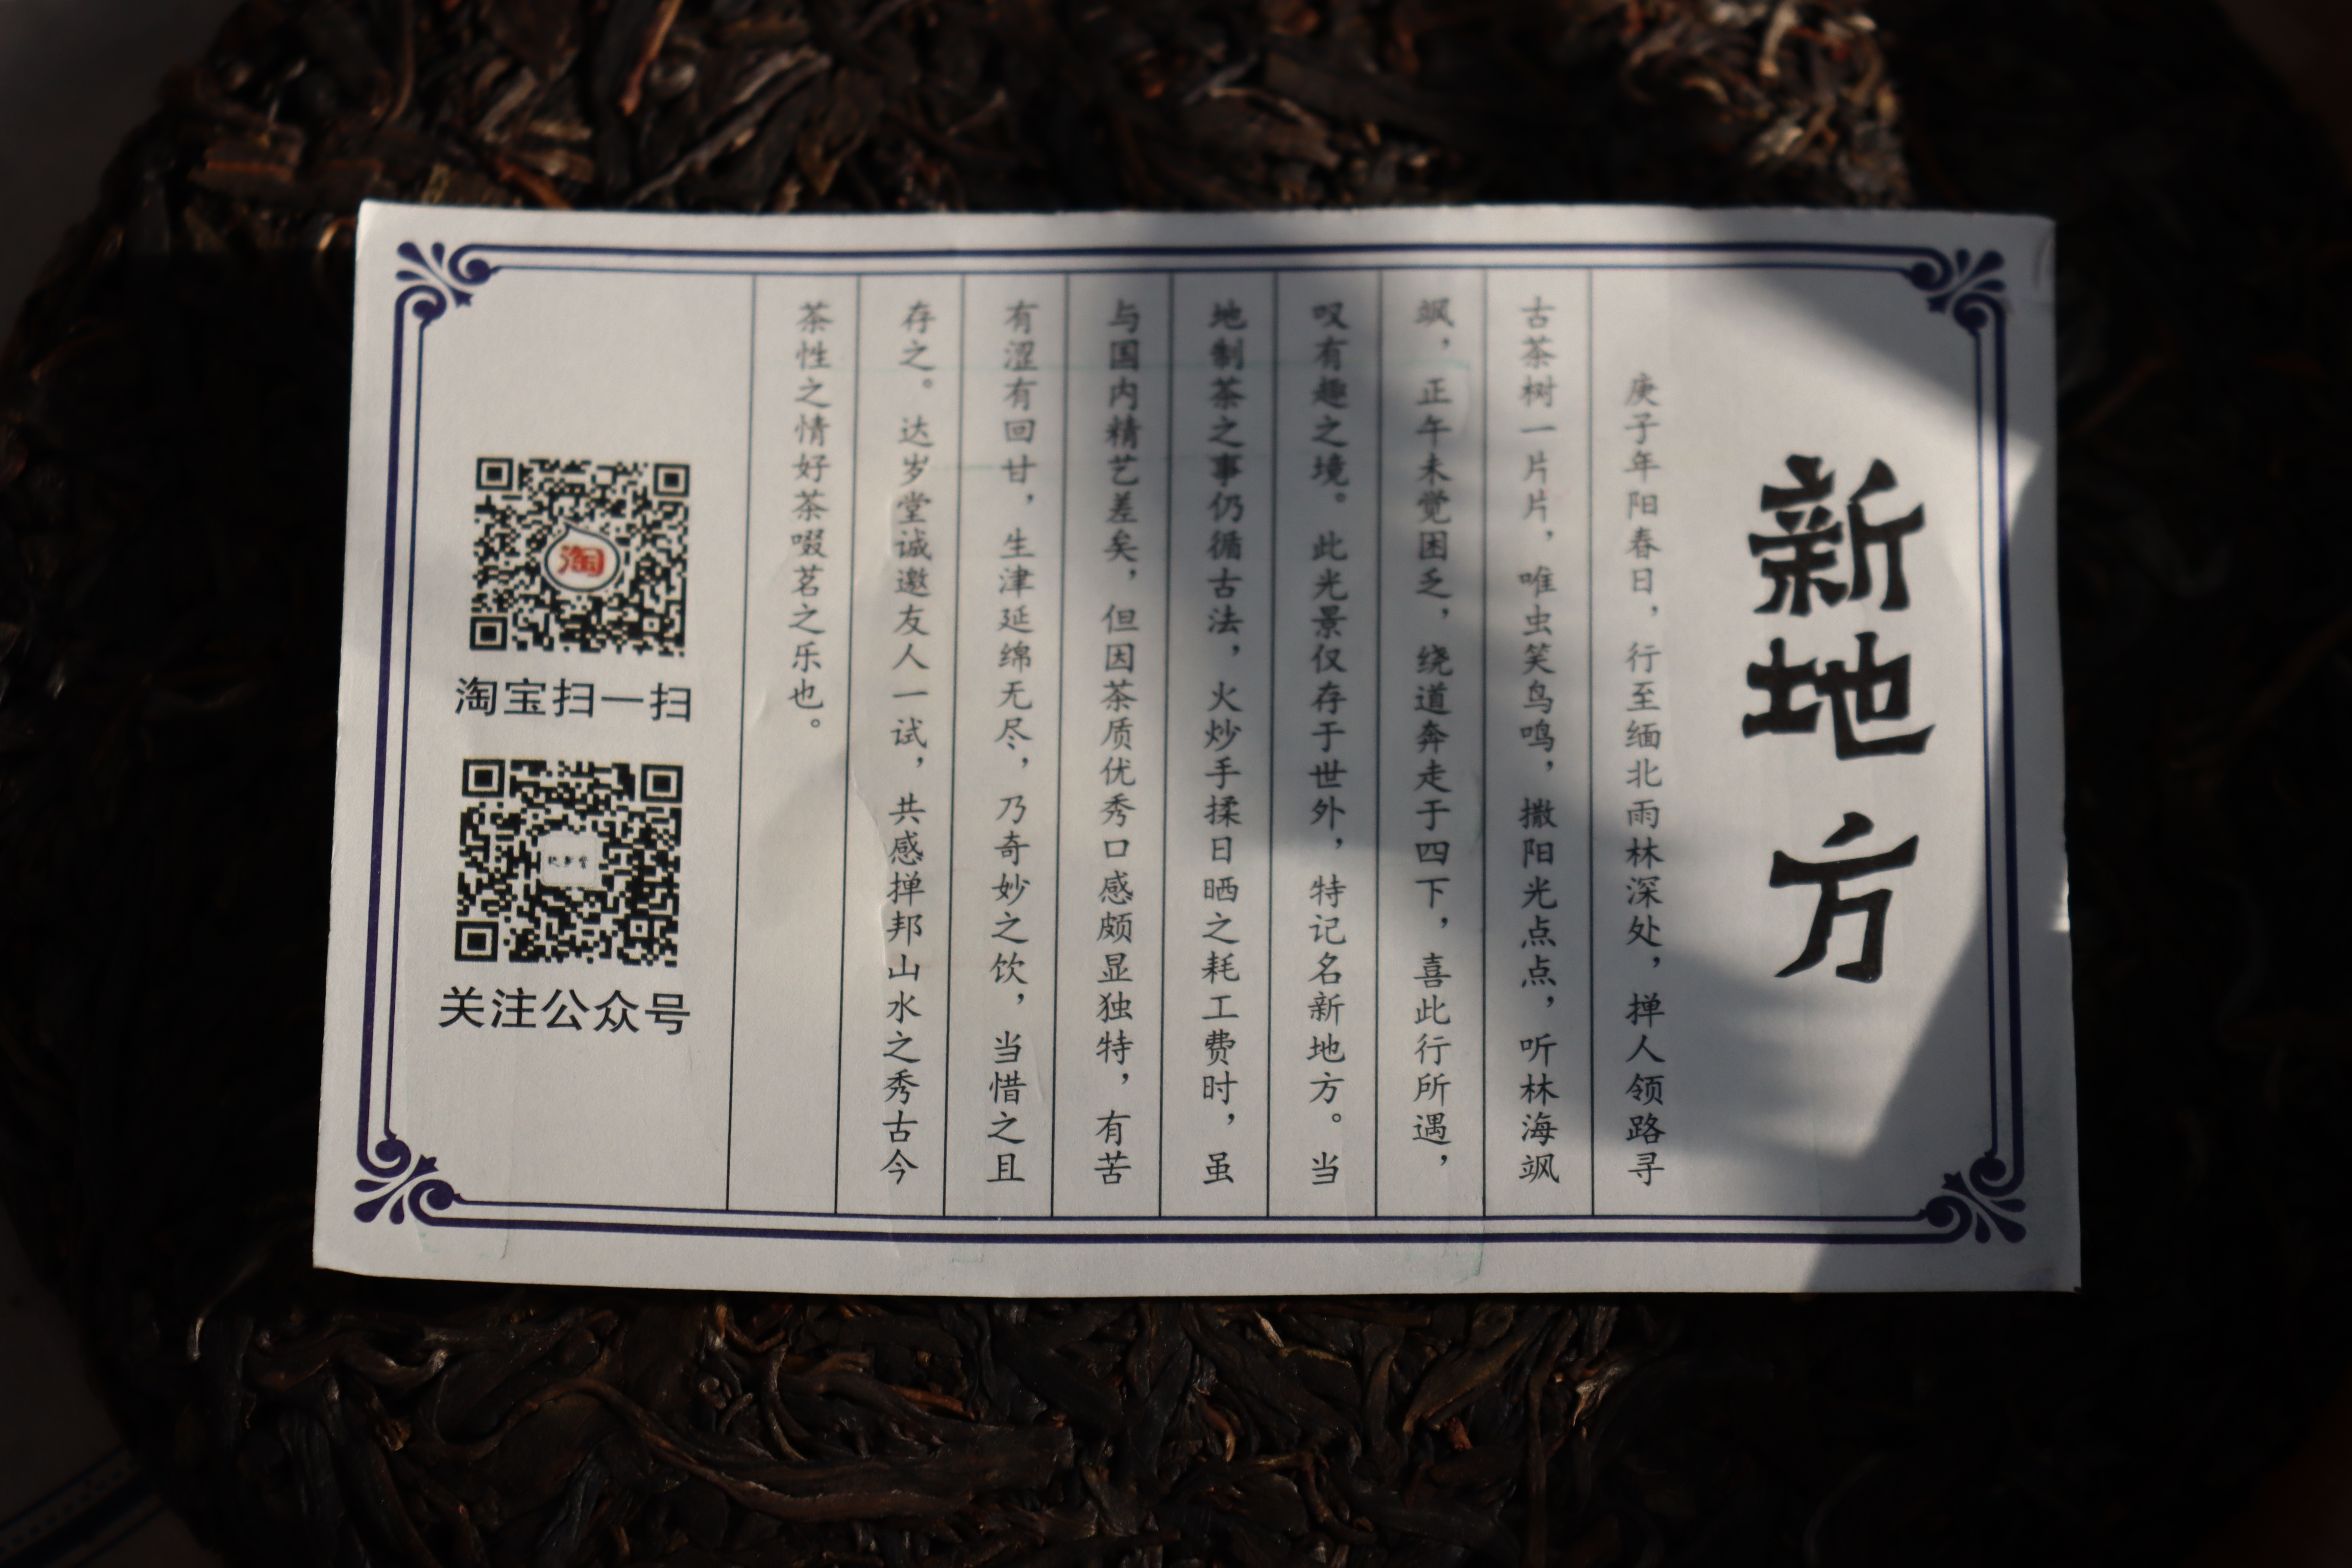 新地方
庚子年阳春日，行至缅北雨林深处，掸人领路寻
古茶树一片片，唯虫笑鸟鸣，撒阳光点点，听林海飒
飒，正午未觉困乏，绕道奔走于四下，喜此行所遇，
叹有趣之境。此光景仅存于世外，特记名新地方。当
地制茶之事仍循古法，火炒手揉日晒之耗工费时，虽
与国内精艺差矣，但因茶质优秀口感颇显独特，有苦
有涩有回甘，生津延绵无尽，乃奇妙之饮，当惜之且
存之。达岁堂诚邀友人一试，共感掸邦山水之秀古今
茶性之情好茶啜茗之乐也。
淘
淘宝扫一扫
关注公众号